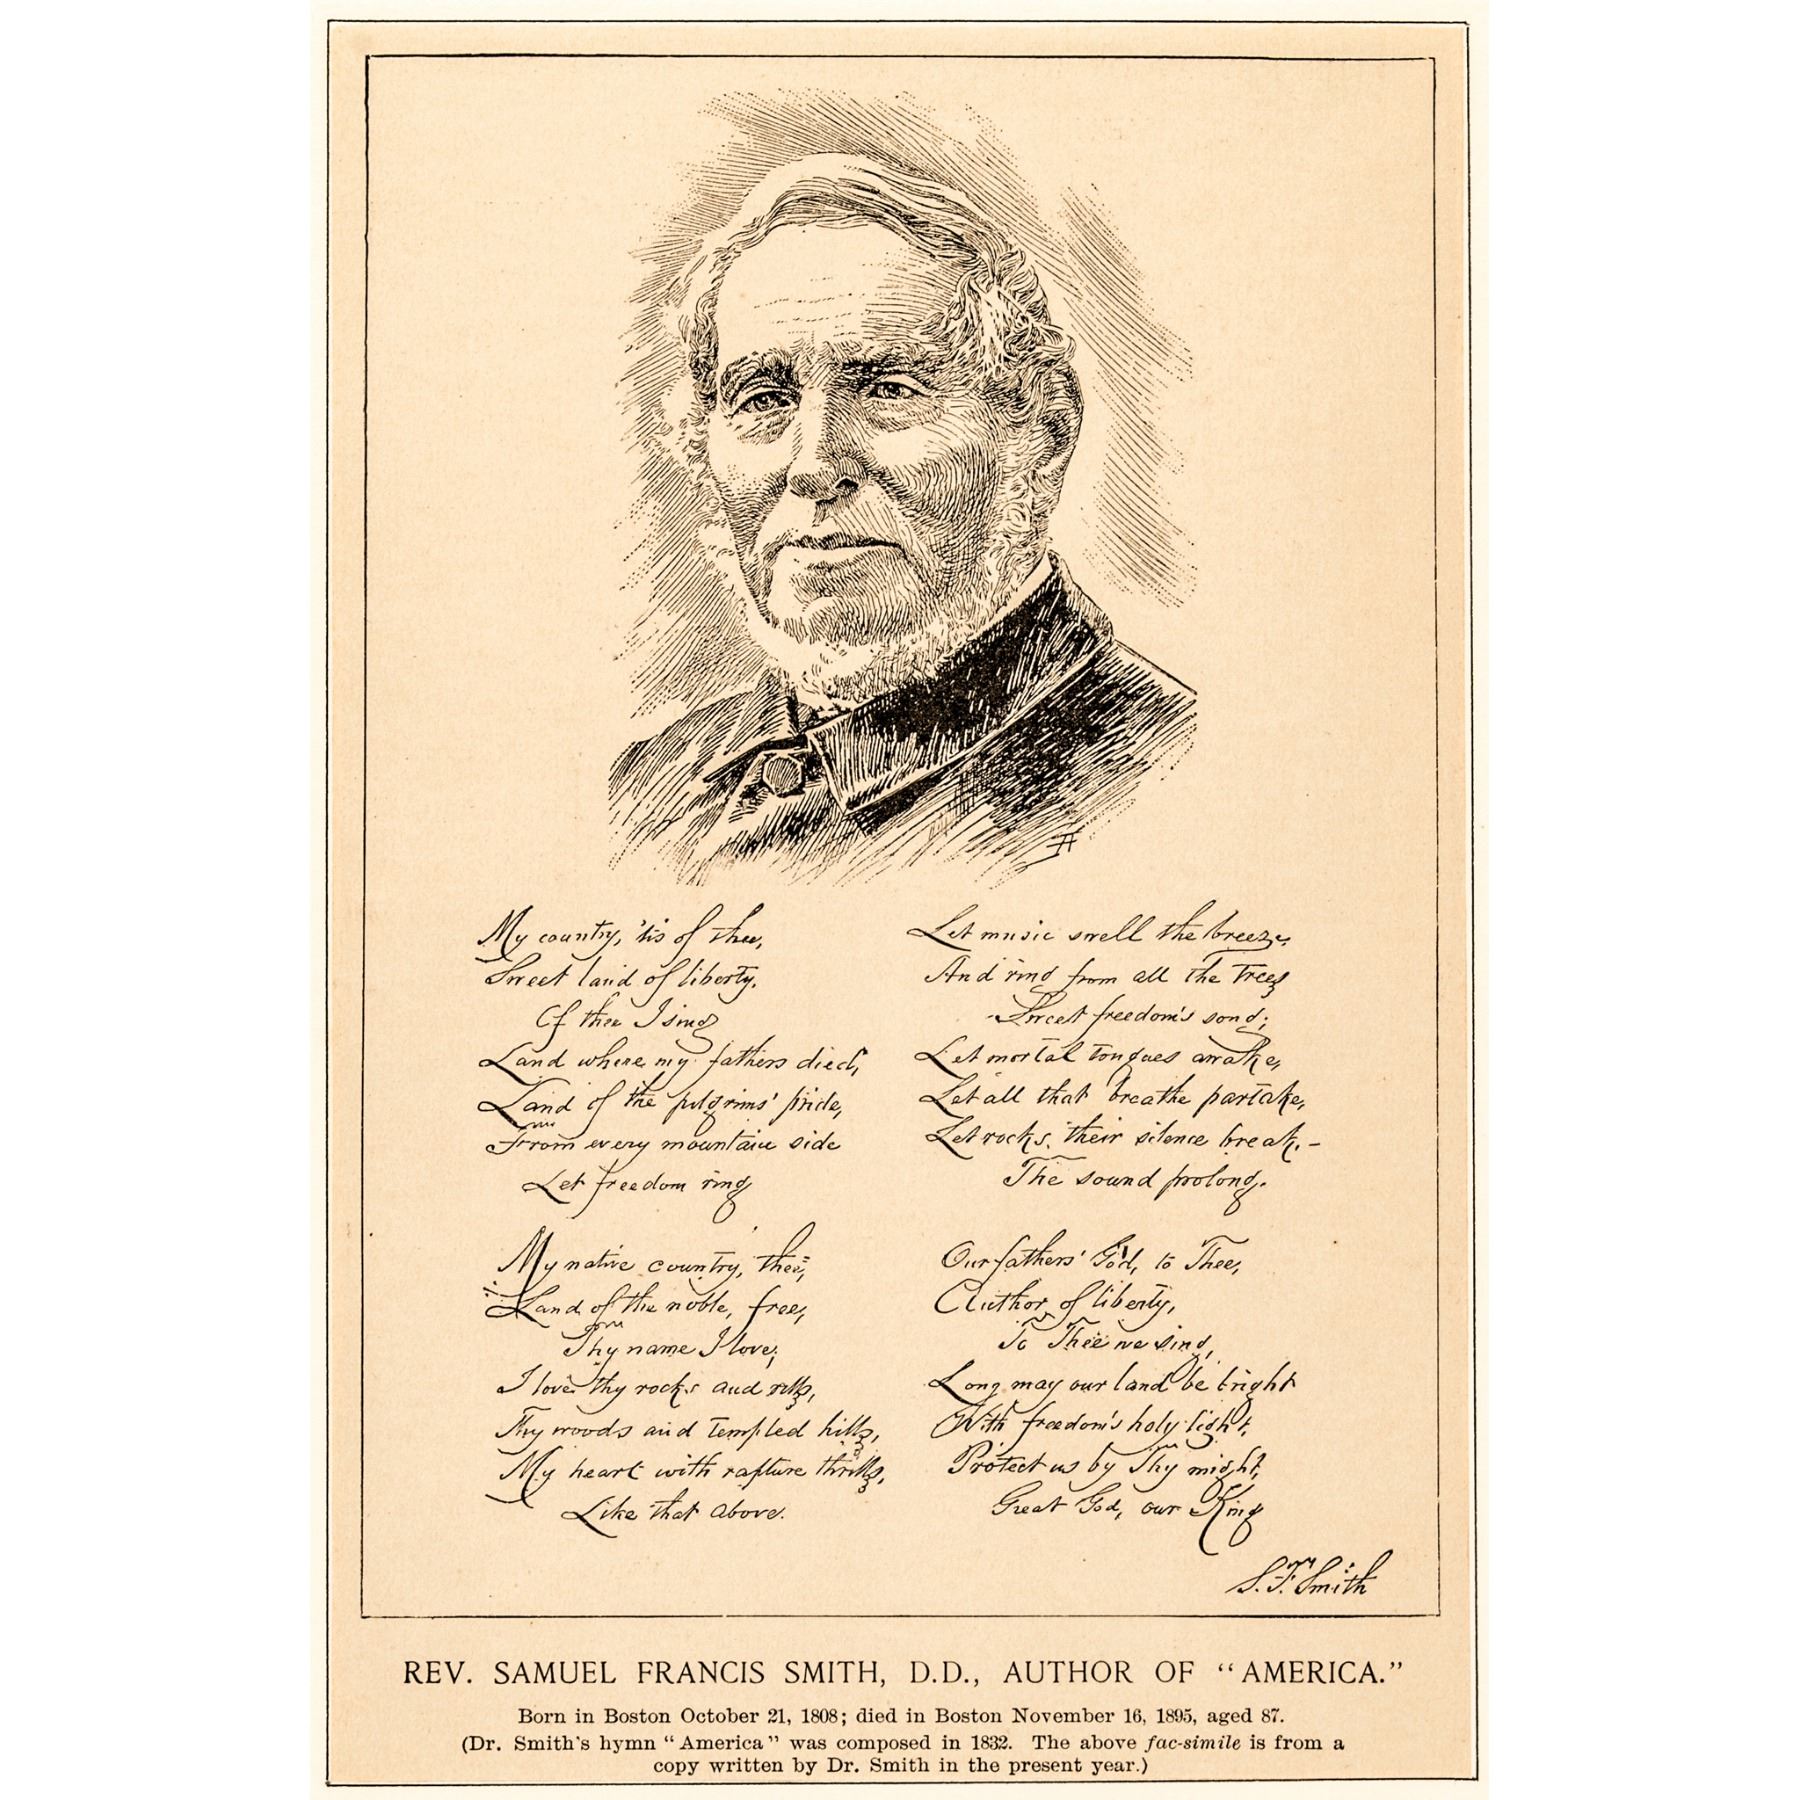 My country, 'tis of thee,
Sweet land of liberty,
Of thee I sing
Land where my fathers died,
Land of the pilgrims' pride,
From every mountain side
Let freedom ring

My native country, thee,
Land of the noble, free,
Thy name I love;
I love thy rocks and rills,
Thy woods and templed hills,
My heart with rapture thrills,
Like that above.

Let music swell the breeze,
And ring from all the trees
Sweet freedom's song;
Let mortal tongues awake,
Let all that breathe partake,
Let rocks their silence break,—
The sound prolong.

Our fathers' God, to Thee,
Author of liberty,
To Thee we sing,
Long may our land be bright
With freedom's holy light,
Protect us by Thy might,
Great God, our King

S. F. Smith

REV. SAMUEL FRANCIS SMITH, D.D., AUTHOR OF “AMERICA.”
Born in Boston October 21, 1808; died in Boston November 16, 1895, aged 87.
(Dr. Smith's hymn “America” was composed in 1832. The above fac-simile is from a
copy written by Dr. Smith in the present year.)